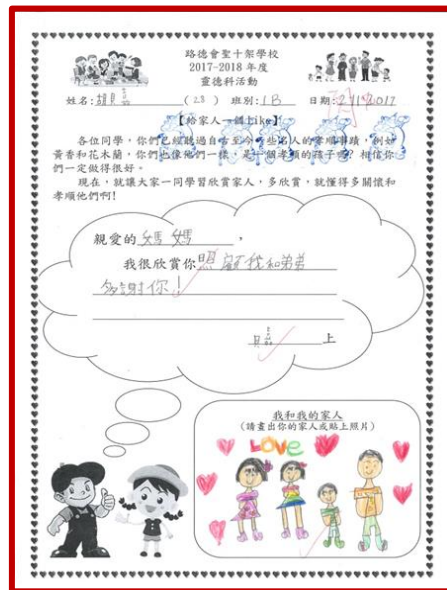 路德會聖十架學校
2017-2018 年度
靈德科活動
姓名:胡貝 (28) 班別:1B 日期:2 11 2017
【給家人一個Like】
各位同學,你們已經聽過自古至今一些名人的孝順事蹟,例如
黃香和花木蘭,你們也像他們一樣,是一個孝順的孩子嗎?相信你
們一定做得很好。
現在,就讓大家一同學習欣賞家人,多欣賞,就懂得多關懷和
孝順他們啊!
親愛的 媽媽,
我很欣賞你 照顧我和弟弟
多謝你!
上
我和我的家人
(請畫出你的家人或貼上照片)
LOVE